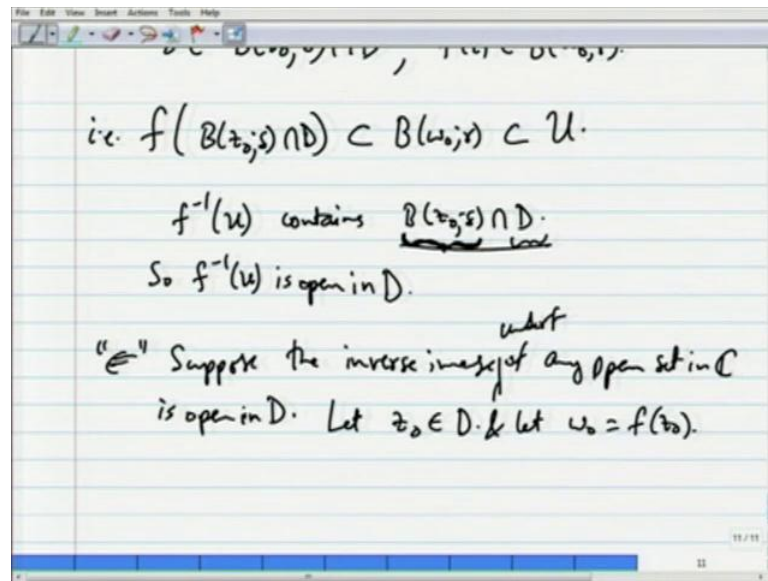 File Edit View Insert Actions Tools Help
i.e. f( B(z₀;s) ∩ D) ⊂ B(w₀;r) ⊂ U.
f⁻¹(u) contains B(z₀;s) ∩ D.
So f⁻¹(u) is open in D.
under f
"⇐" Suppose the inverse image of any open set in ℂ
is open in D. Let z₀ ∈ D. & let w₀ = f(z₀).
11 / 11
11